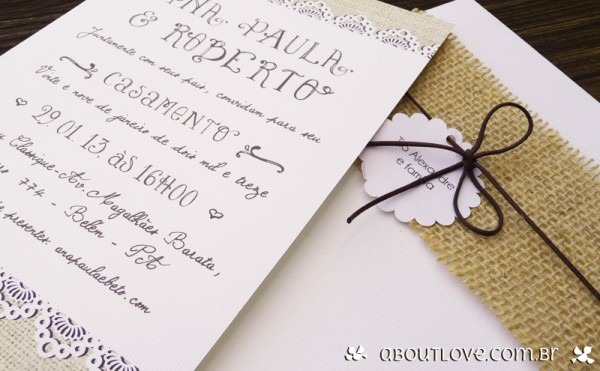 ANA PAULA
& ROBERTO
Juntamente com seus pais, convidam para seu
CASAMENTO
Vinte e nove de janeiro de dois mil e treze
29.01.13, às 16H00
Classique - Av. Magalhães Barata,
774 - Belém - PA
presentes: anapaulaebeto.com
Tio Alexandre
e família
aboutlove.com.br